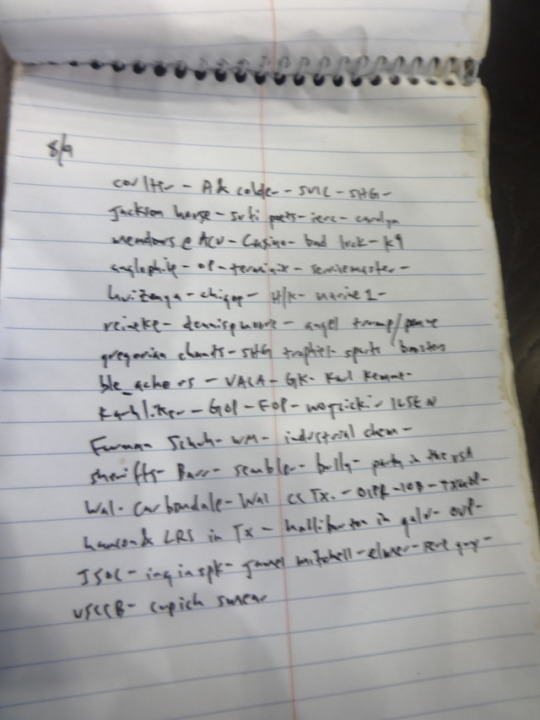 8/9
coulter - AK colder - SVIC - SHG -
Jackson house - sufi poets - ierc - carolyn
meadows @ ACU - Casino - bad luck - K9
anglophile - OP - terminix - servicemaster -
huizenga - chigop - H/K - marine 1 -
reineke - dennis moore - angel trump/pence
gregorian chants - SHG trophies - sports boosters
ble_achers - VALA - GK - Karl Kemp -
- GOP - FOP - ILSEN
Furman Schuh - WM - industrial chem -
sheriffs - Barr - sembler - bully - party in the USA
Wal - Carbondale - Wal CS Tx. - OIPR - IOB -
LRS in Tx - halliburton in gulf - OVP -
JSOC - ing in spk - james mitchell - elmer -
USCCB - cupich smear